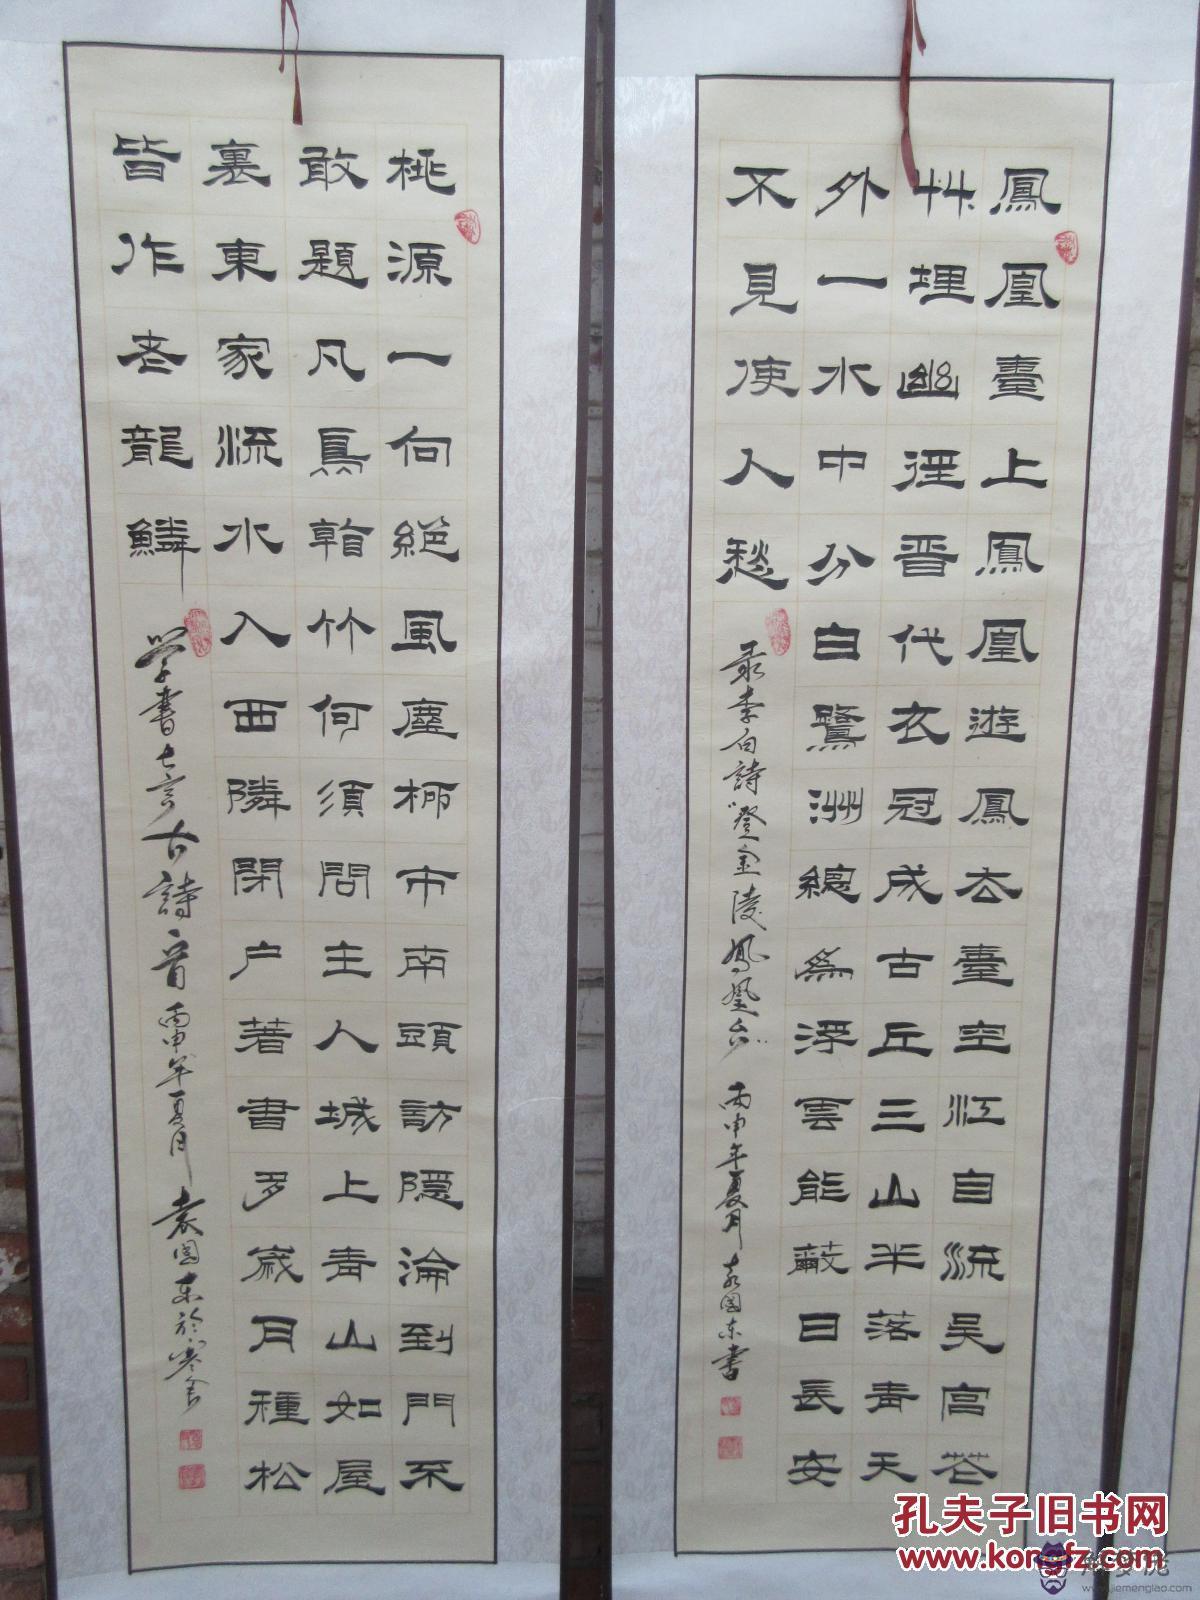 鳳凰臺上鳳凰遊鳳去臺空江自流吳宮花
艸埋幽徑晋代衣冠成古丘三山半落青天
外一水中分白鷺洲總為浮雲能蔽日長安
不見使人愁
录李白詩登金陵鳳凰台 丙申年夏月 袁國东書
桃源一向絕風塵柳市南頭訪隱淪到門不
敢題凡鳥看竹何須問主人城上青山如屋
裏東家流水入西隣閉户著書多歲月種松
皆作老龍鱗
学書七言古詩一首 丙申年夏月 袁國东於寒舍
孔夫子旧书网
www.kongfz.com
www.jiemenglao.com